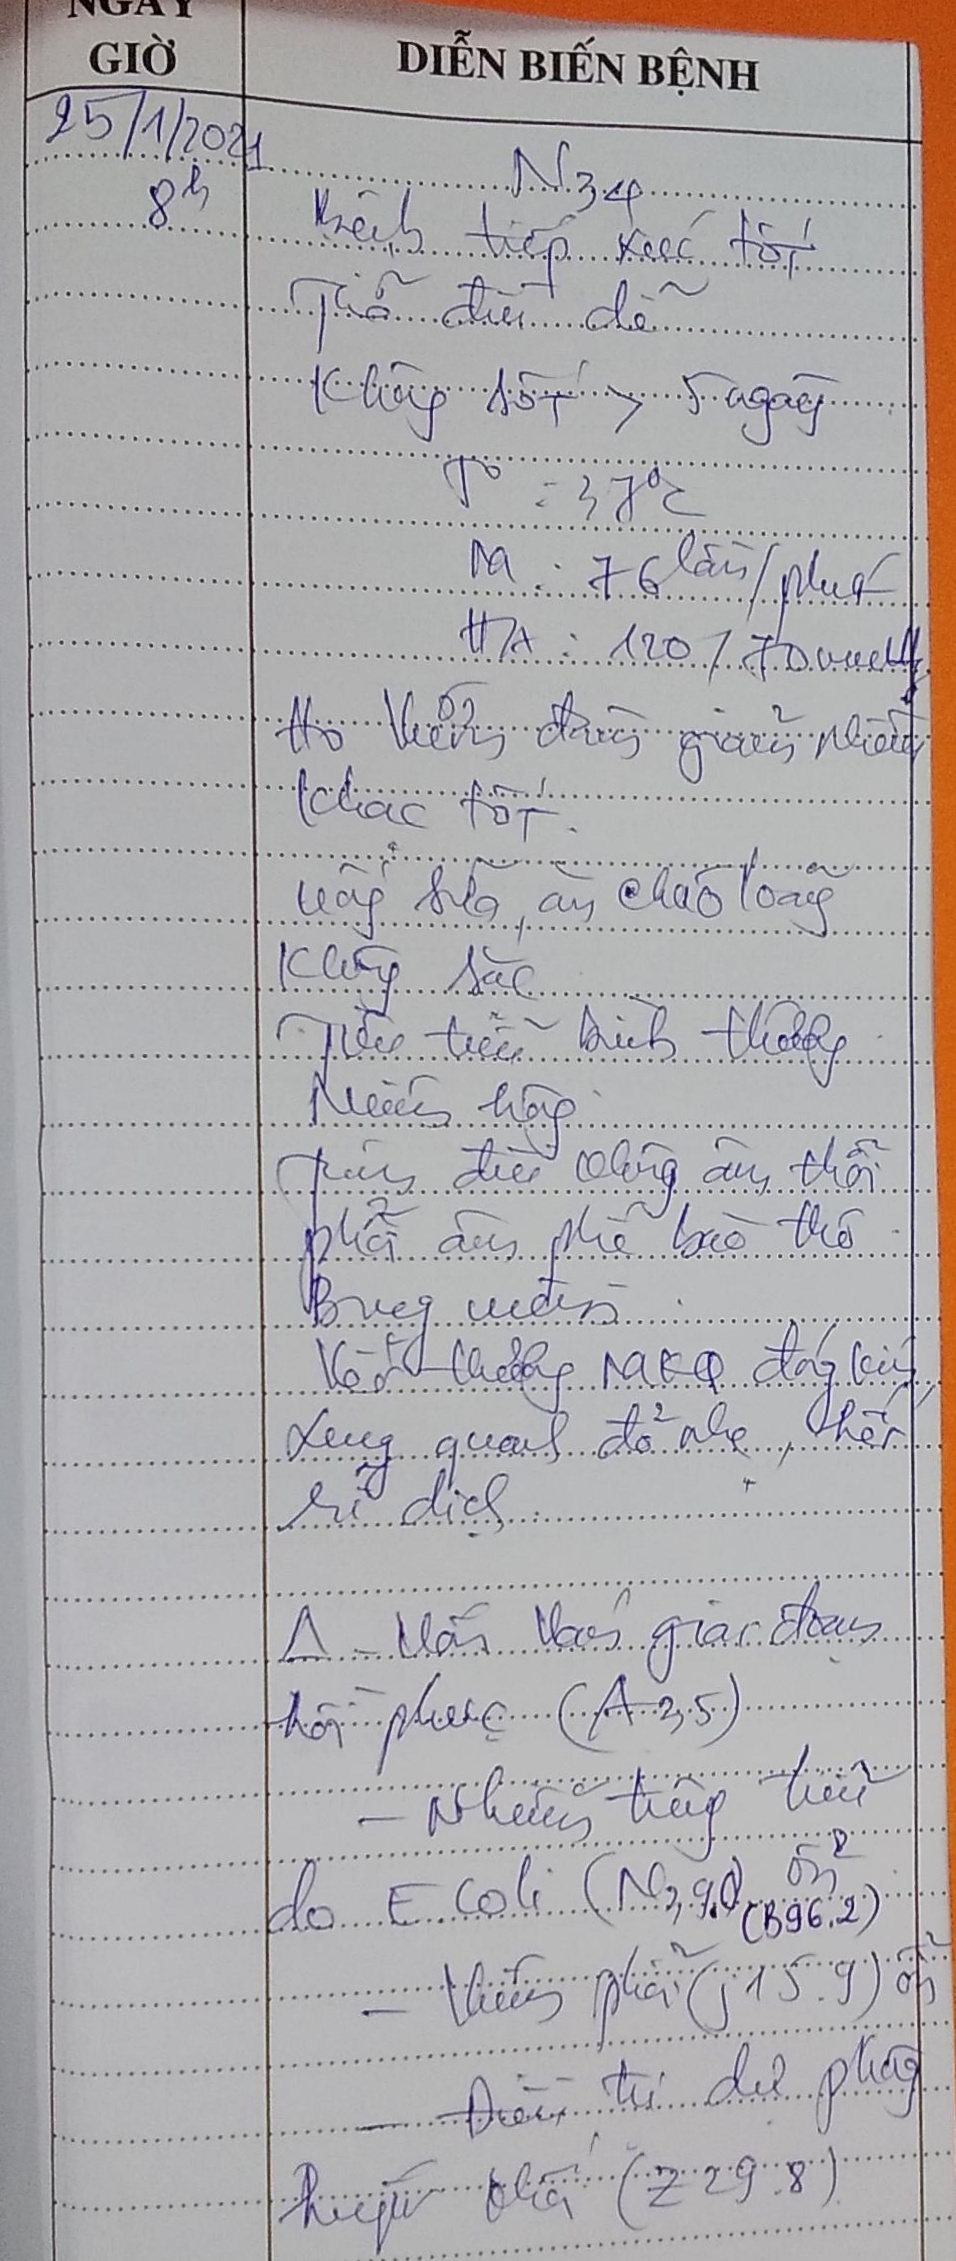 NGÀY
GIỜ
DIỄN BIẾN BỆNH
25/1/2021
8h
N34
Bệnh tiếp xúc tốt
Thở đều dễ
Không sốt > 5 ngày
T° = 37°C
M : 76 lần/phút
HA : 120/70mmHg
Ho đàm giảm nhiều
khạc tốt.
uống sữa, ăn cháo loãng
không sặc
Tiêu tiểu bình thường
Niêm hồng
Tim đều không âm thổi
phổi âm phế bào thô
Bụng mềm.
Vết thương MKQ đóng kín
xung quanh đỏ nhẹ, hết
rỉ dịch.
Δ - Uốn ván giai đoạn
hồi phục (A35)
- Nhiễm trùng tiểu
do E Coli (N39.0) ổn
(B96.2)
- Viêm phổi (J15.9) ổn
- Điều trị dự phòng
huyết khối (Z29.8)